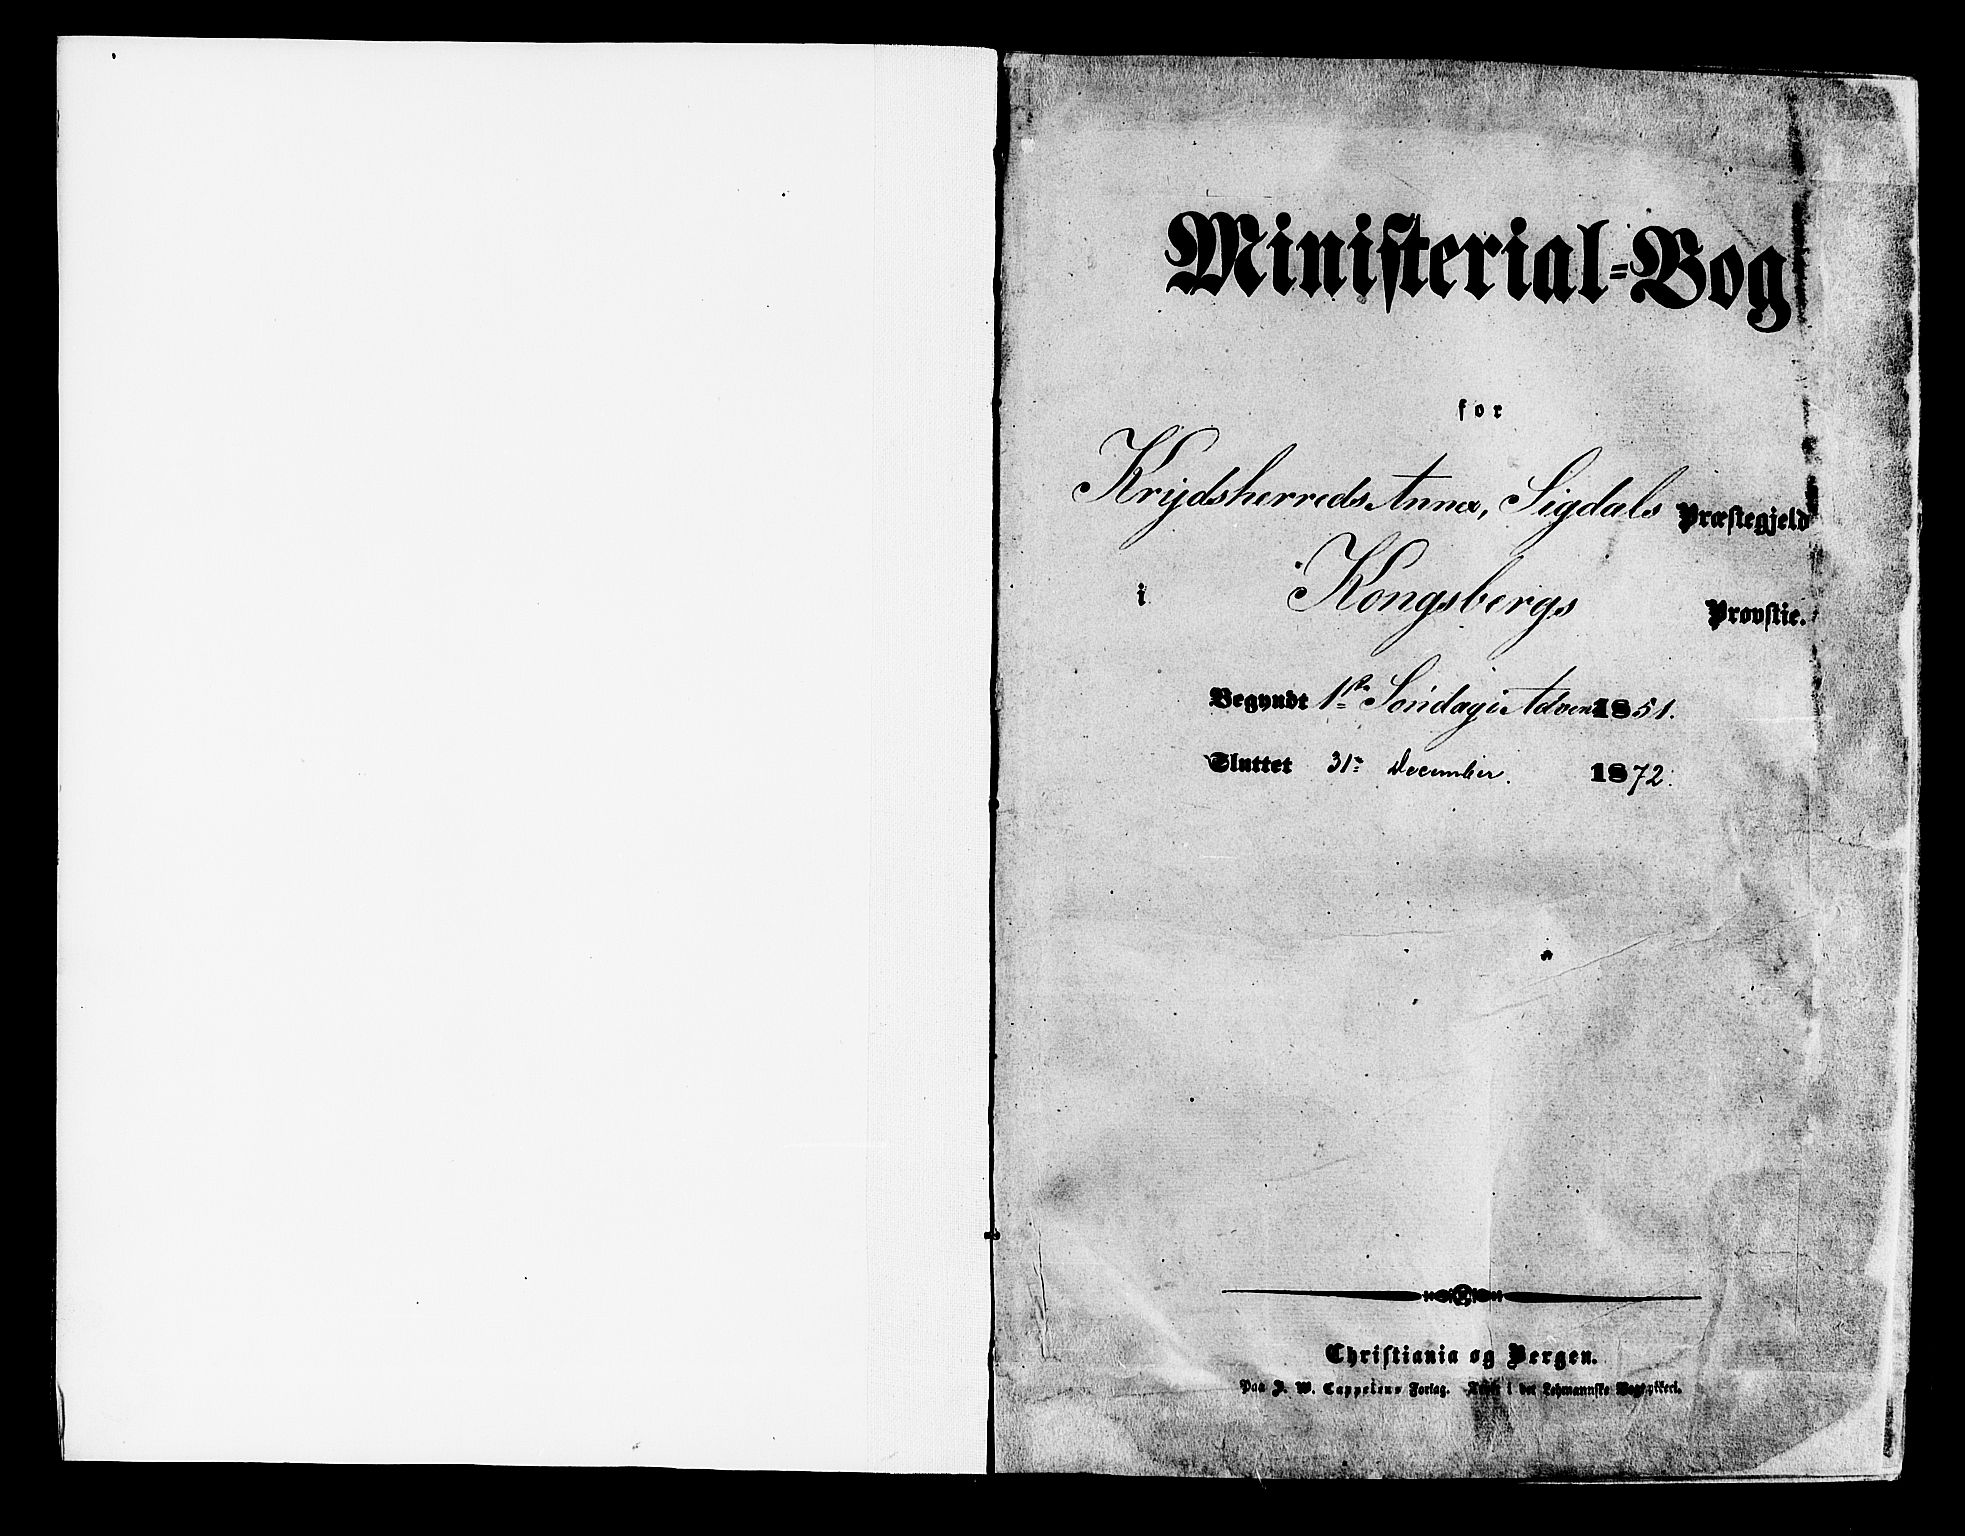 Ministerial-Bog
for
Krydsherreds Annex, Sigdals Præstegjeld
i Kongsbergs Provstie.
Begyndt 1ste Søndag i Advent 1851.
Sluttet 31te December. 1872.
Christiania og Bergen.
Paa J. W. Cappelens Forlag. Trykt i det Lehmannske Bogtrykkeri.